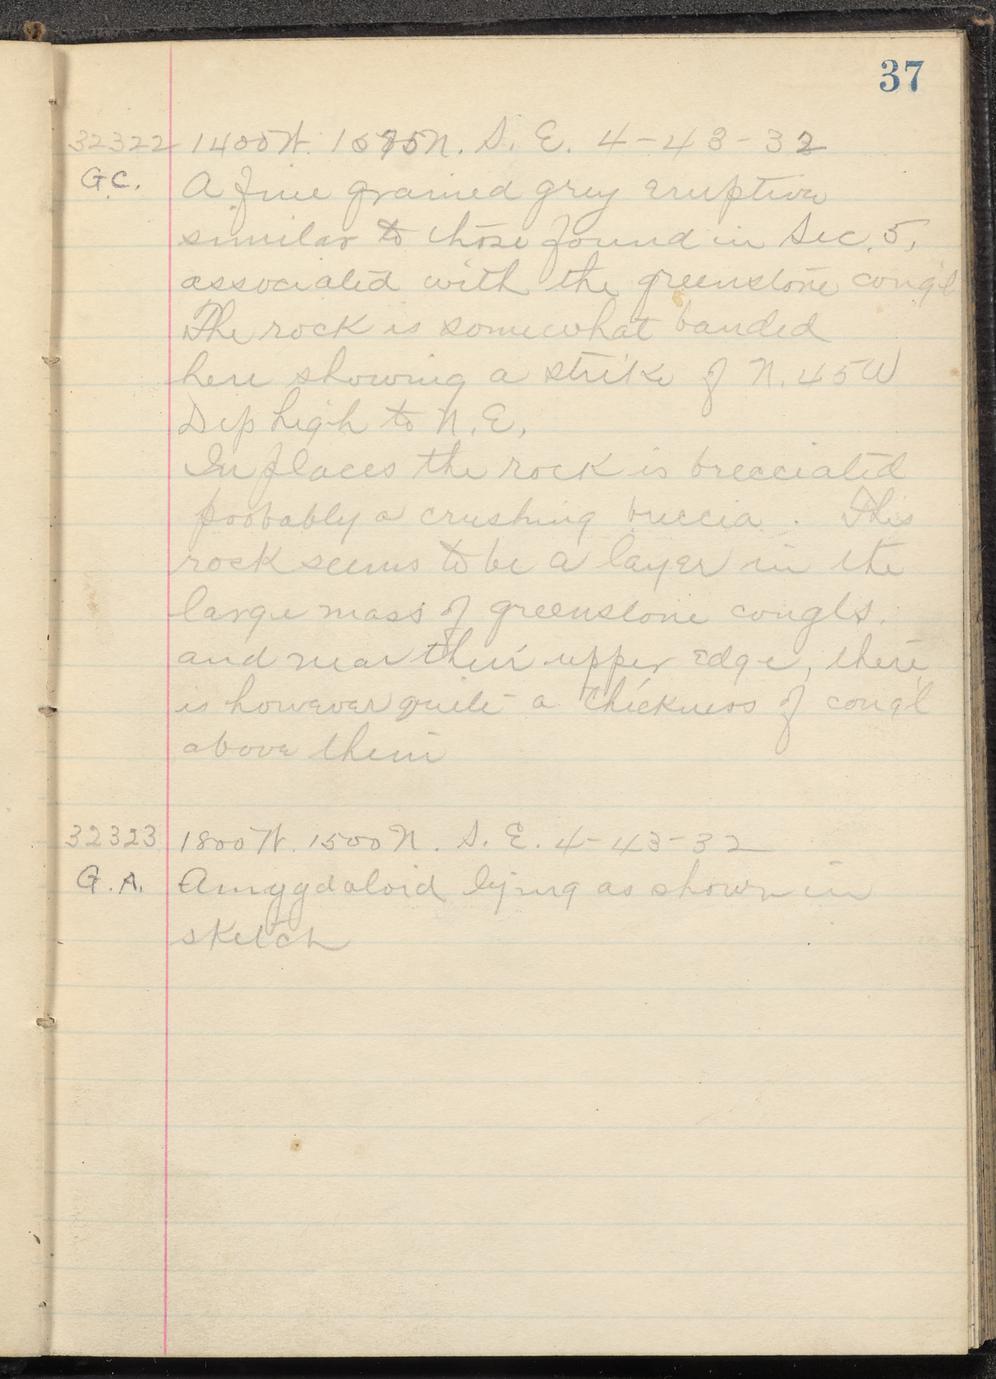 37
32322 1400 W. 1575 N. S. E. 4-43-32
G.C. A fine grained grey eruptive
similar to those found in Sec. 5,
associated with the greenstone congl
The rock is somewhat banded
here showing a strike of N. 45 W
Dip high to N.E.
In places the rock is brecciated
probably a crushing breccia. This
rock seems to be a layer in the
large mass of greenstone conglts.
and near their upper edge, there
is however quite a thickness of congl
above them
32323 1800 W. 1500 N. S. E. 4-43-32
G.A. Amygdaloid lying as shown in
sketch